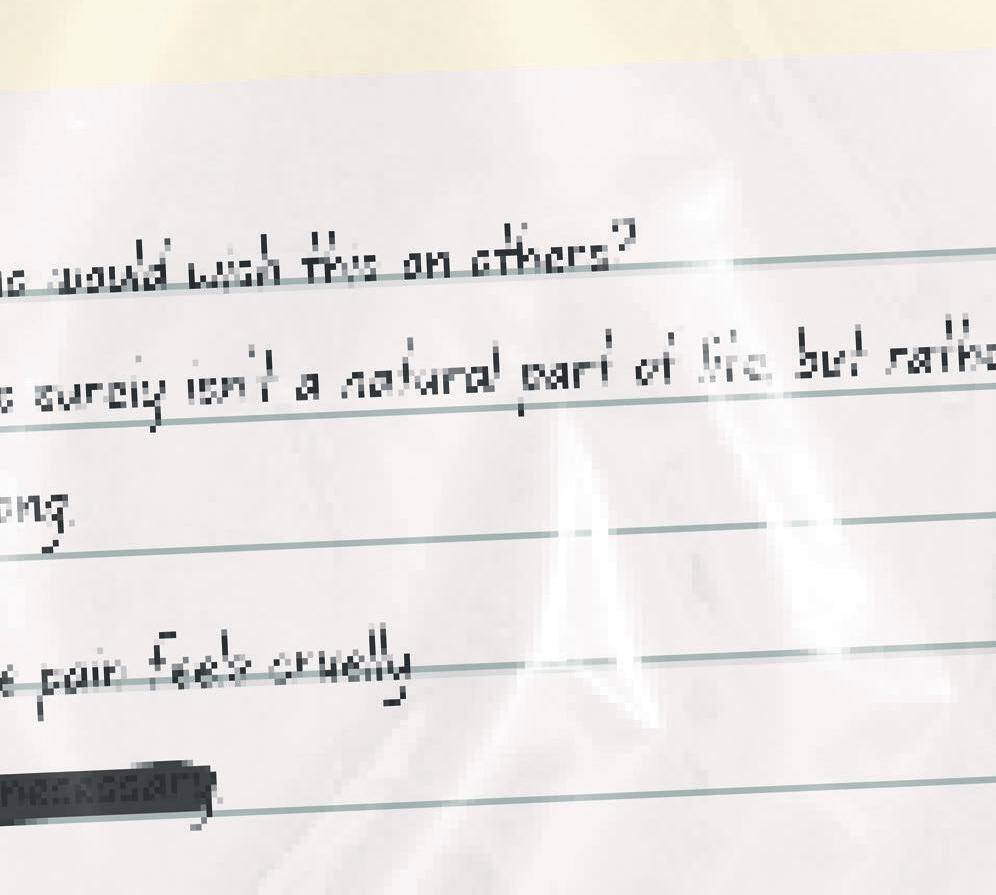 would wish this on others?
surely isn't a natural part of life but rathe
ong
pain feels cruelly
necessary